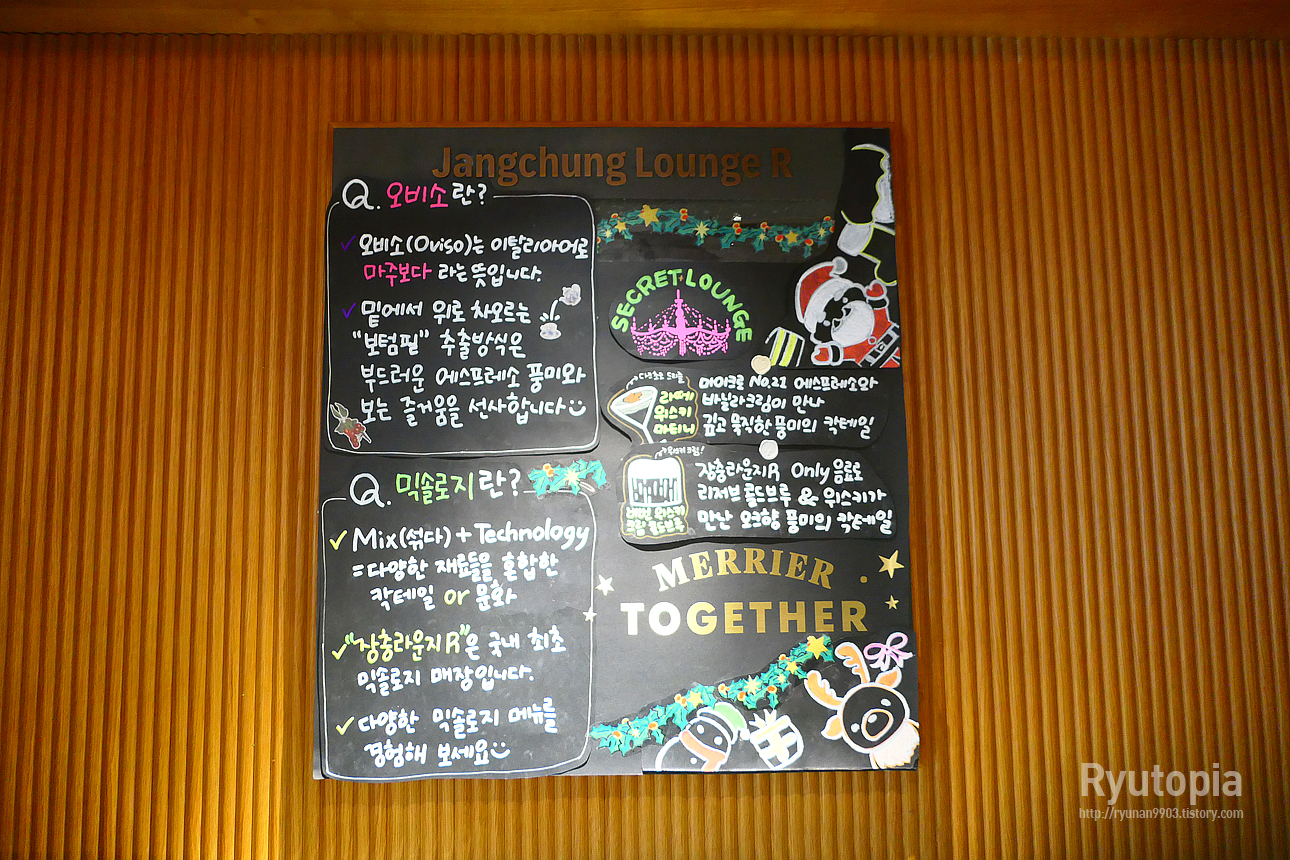 Jangchung Lounge R
Q. 오비소란?
오비소(Oviso)는 이탈리아어로
마주보다 라는 뜻입니다.
밑에서 위로 차오르는
"보텀필" 추출방식은
부드러운 에스프레소 풍미와
보는 즐거움을 선사합니다
Q. 믹솔로지란?
Mix(섞다) + Technology
= 다양한 재료들을 혼합한
칵테일 or 문화
"장충라운지R"은 국내 최초
믹솔로지 매장입니다.
다양한 믹솔로지 메뉴를
경험해 보세요
SECRET LOUNGE
라떼
위스키
마티니
마이크로 No.21 에스프레소와
바닐라크림이 만나
깊고 묵직한 풍미의 칵테일
위스키
크림 콜드브루
장충라운지R Only 음료로
리저브 콜드브루 & 위스키가
만난 오크향 풍미의 칵테일
MERRIER
TOGETHER
Ryutopia
http://ryunan9903.tistory.com